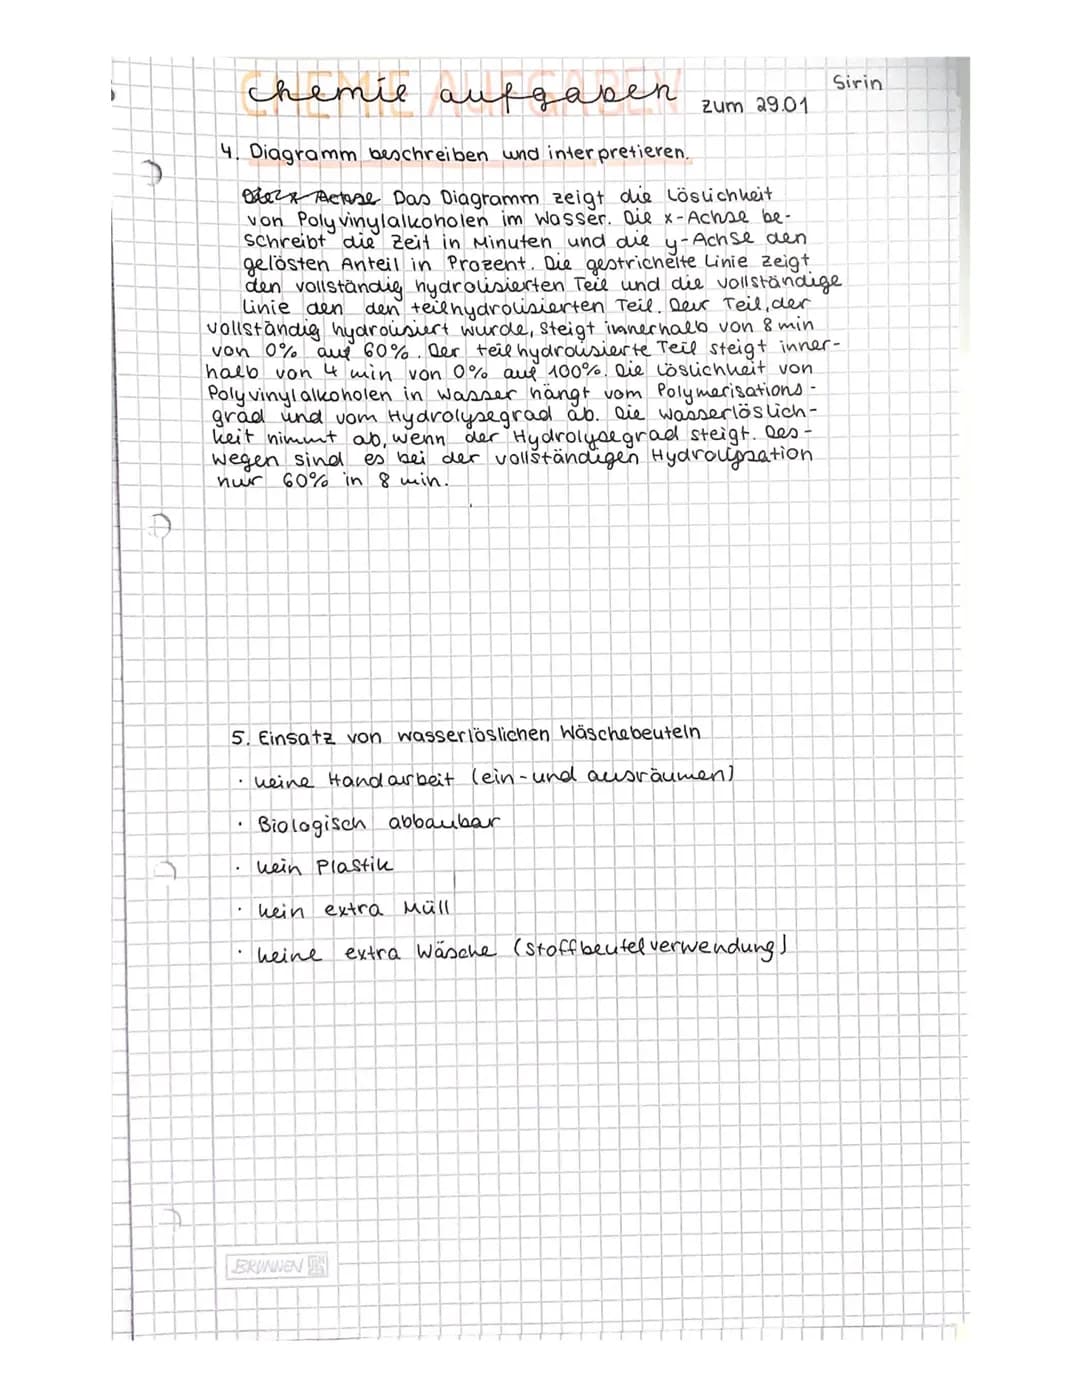 chemie aufgaben
Sirin
zum 29.01
4. Diagramm beschreiben und interpretieren.
Das Diagramm zeigt die Löslichkeit
von Polyvinylalkoholen im Wasser. Die x-Achse be-
schreibt die Zeit in Minuten und die y-Achse den
gelösten Anteil in Prozent. Die gestrichelte Linie zeigt
den vollständig hydrolisierten Teil und die vollständige
Linie den den teilhydrolisierten Teil. Der Teil, der
vollständig hydrolisiert wurde, steigt innerhalb von 8 min
von 0% auf 60%. Der teilhydrolisierte Teil steigt inner-
halb von 4 min von 0% auf 100%. Die Löslichkeit von
Polyvinylalkoholen in Wasser hängt vom Polymerisations-
grad und vom Hydrolysegrad ab. Die Wasserlöslich-
keit nimmt ab, wenn der Hydrolysegrad steigt. Des-
wegen sind es bei der vollständigen
nur 60% in 8 min.
5. Einsatz von wasserlöslichen Wäschebeuteln
· keine Handarbeit (ein-und ausräumen)
· Biologisch abbaubar
· kein Plastik
· kein extra Müll
· keine extra Wäsche (Stoffbeutelverwendung)
BRUNNEN